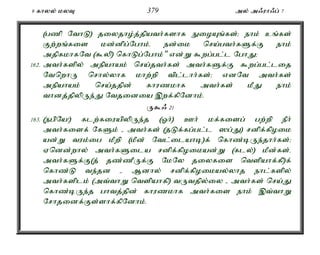 9 காலல் மலவு 379 அல் அஃராஃப் 7
(பணி வோடு) தலைதாழ்த்தியவர்களாக நுழையுங்கள்; நாம் உங்கள்
குற்றங்களை மன்னிப்போம். நன்மை செய்பவர்களுக்கு நாம்
அதிகமாகவே (கூலி) கொடுப்போம்" என்று கூறப்பட்ட போது;
162. அவர்களில் அநியாயம் செய்தவர்கள் அவர்களுக்கு கூறப்பட்டதை
வேறொரு சொல்லாக மாற்றி விட்டார்கள்; எனவே அவர்கள்
அநியாயம் செய்ததின் காரணமாக அவர்கள் மீது நாம்
வானத்திலிருந்து வேதனையை இறக்கினோம்.
ருகூஃ 21
163. (நபியே) கடற்கரையிலிருந்த (ஓர்) ஊர் மக்களைப் பற்றி நீர்
அவர்களைக் கேளும் , அவர்கள் (தடுக்கப்பட்ட ஸப்து) சனிக்கிழமை
யன்று வரம்பை மீறி (மீன் வேட்டையாடி)க் கொண்டிருந்தார்கள்;
ஏனென்றால் அவர்களுடைய சனிக்கிழமையன்று (கடல்) மீன்கள்,
அவர்களுக்கு(த் தண்ணீருக்கு மேலே தலைகளை வெளியாக்கி)க்
கொண்டு வந்தன - ஆனால் சனிக்கிழமையல்லாத நாட்களில்
அவர்களிடம் (அவ்வாறு வெளியாகி) வருவதில்லை , அவர்கள் செய்து
கொண்டிருந்த பாவத்தின் காரணமாக அவர்களை நாம் இவ்வாறு
சோதனைக்குள்ளாக்கினோம்.